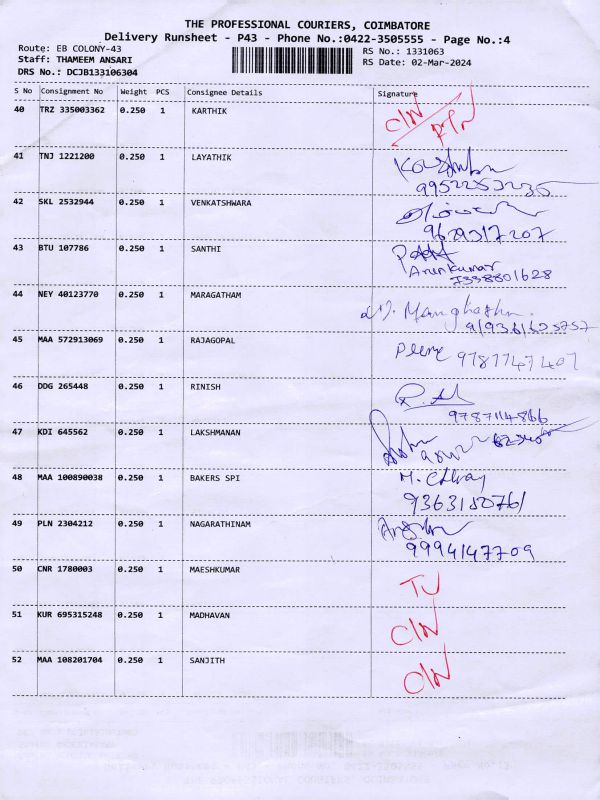 THE PROFESSIONAL COURIERS, COIMBATORE
Delivery Runsheet - P43 - Phone No.:0422-3505555 - Page No.:4
Route: EB COLONY-43 RS No.: 1331063
Staff: THAMEEM ANSARI RS Date: 02-Mar-2024
DRS No.: DCJB133106304
S No Consignment No Weight PCS Consignee Details Signature
40 TRZ 335003362 0.250 1 KARTHIK
41 TNJ 1221200 0.250 1 LAYATHIK
42 SKL 2532944 0.250 1 VENKATSHWARA
9629317207
43 BTU 107786 0.250 1 SANTHI
Arunkumar
7338801628
44 NEY 40123770 0.250 1 MARAGATHAM
45 MAA 572913069 0.250 1 RAJAGOPAL
9787747407
46 DDG 265448 0.250 1 RINISH
9787114866
47 KDI 645562 0.250 1 LAKSHMANAN
48 MAA 100890038 0.250 1 BAKERS SPI
9363150761
49 PLN 2304212 0.250 1 NAGARATHINAM
9994147709
50 CNR 1780003 0.250 1 MAESHKUMAR
51 KUR 695315248 0.250 1 MADHAVAN
52 MAA 108201704 0.250 1 SANJITH